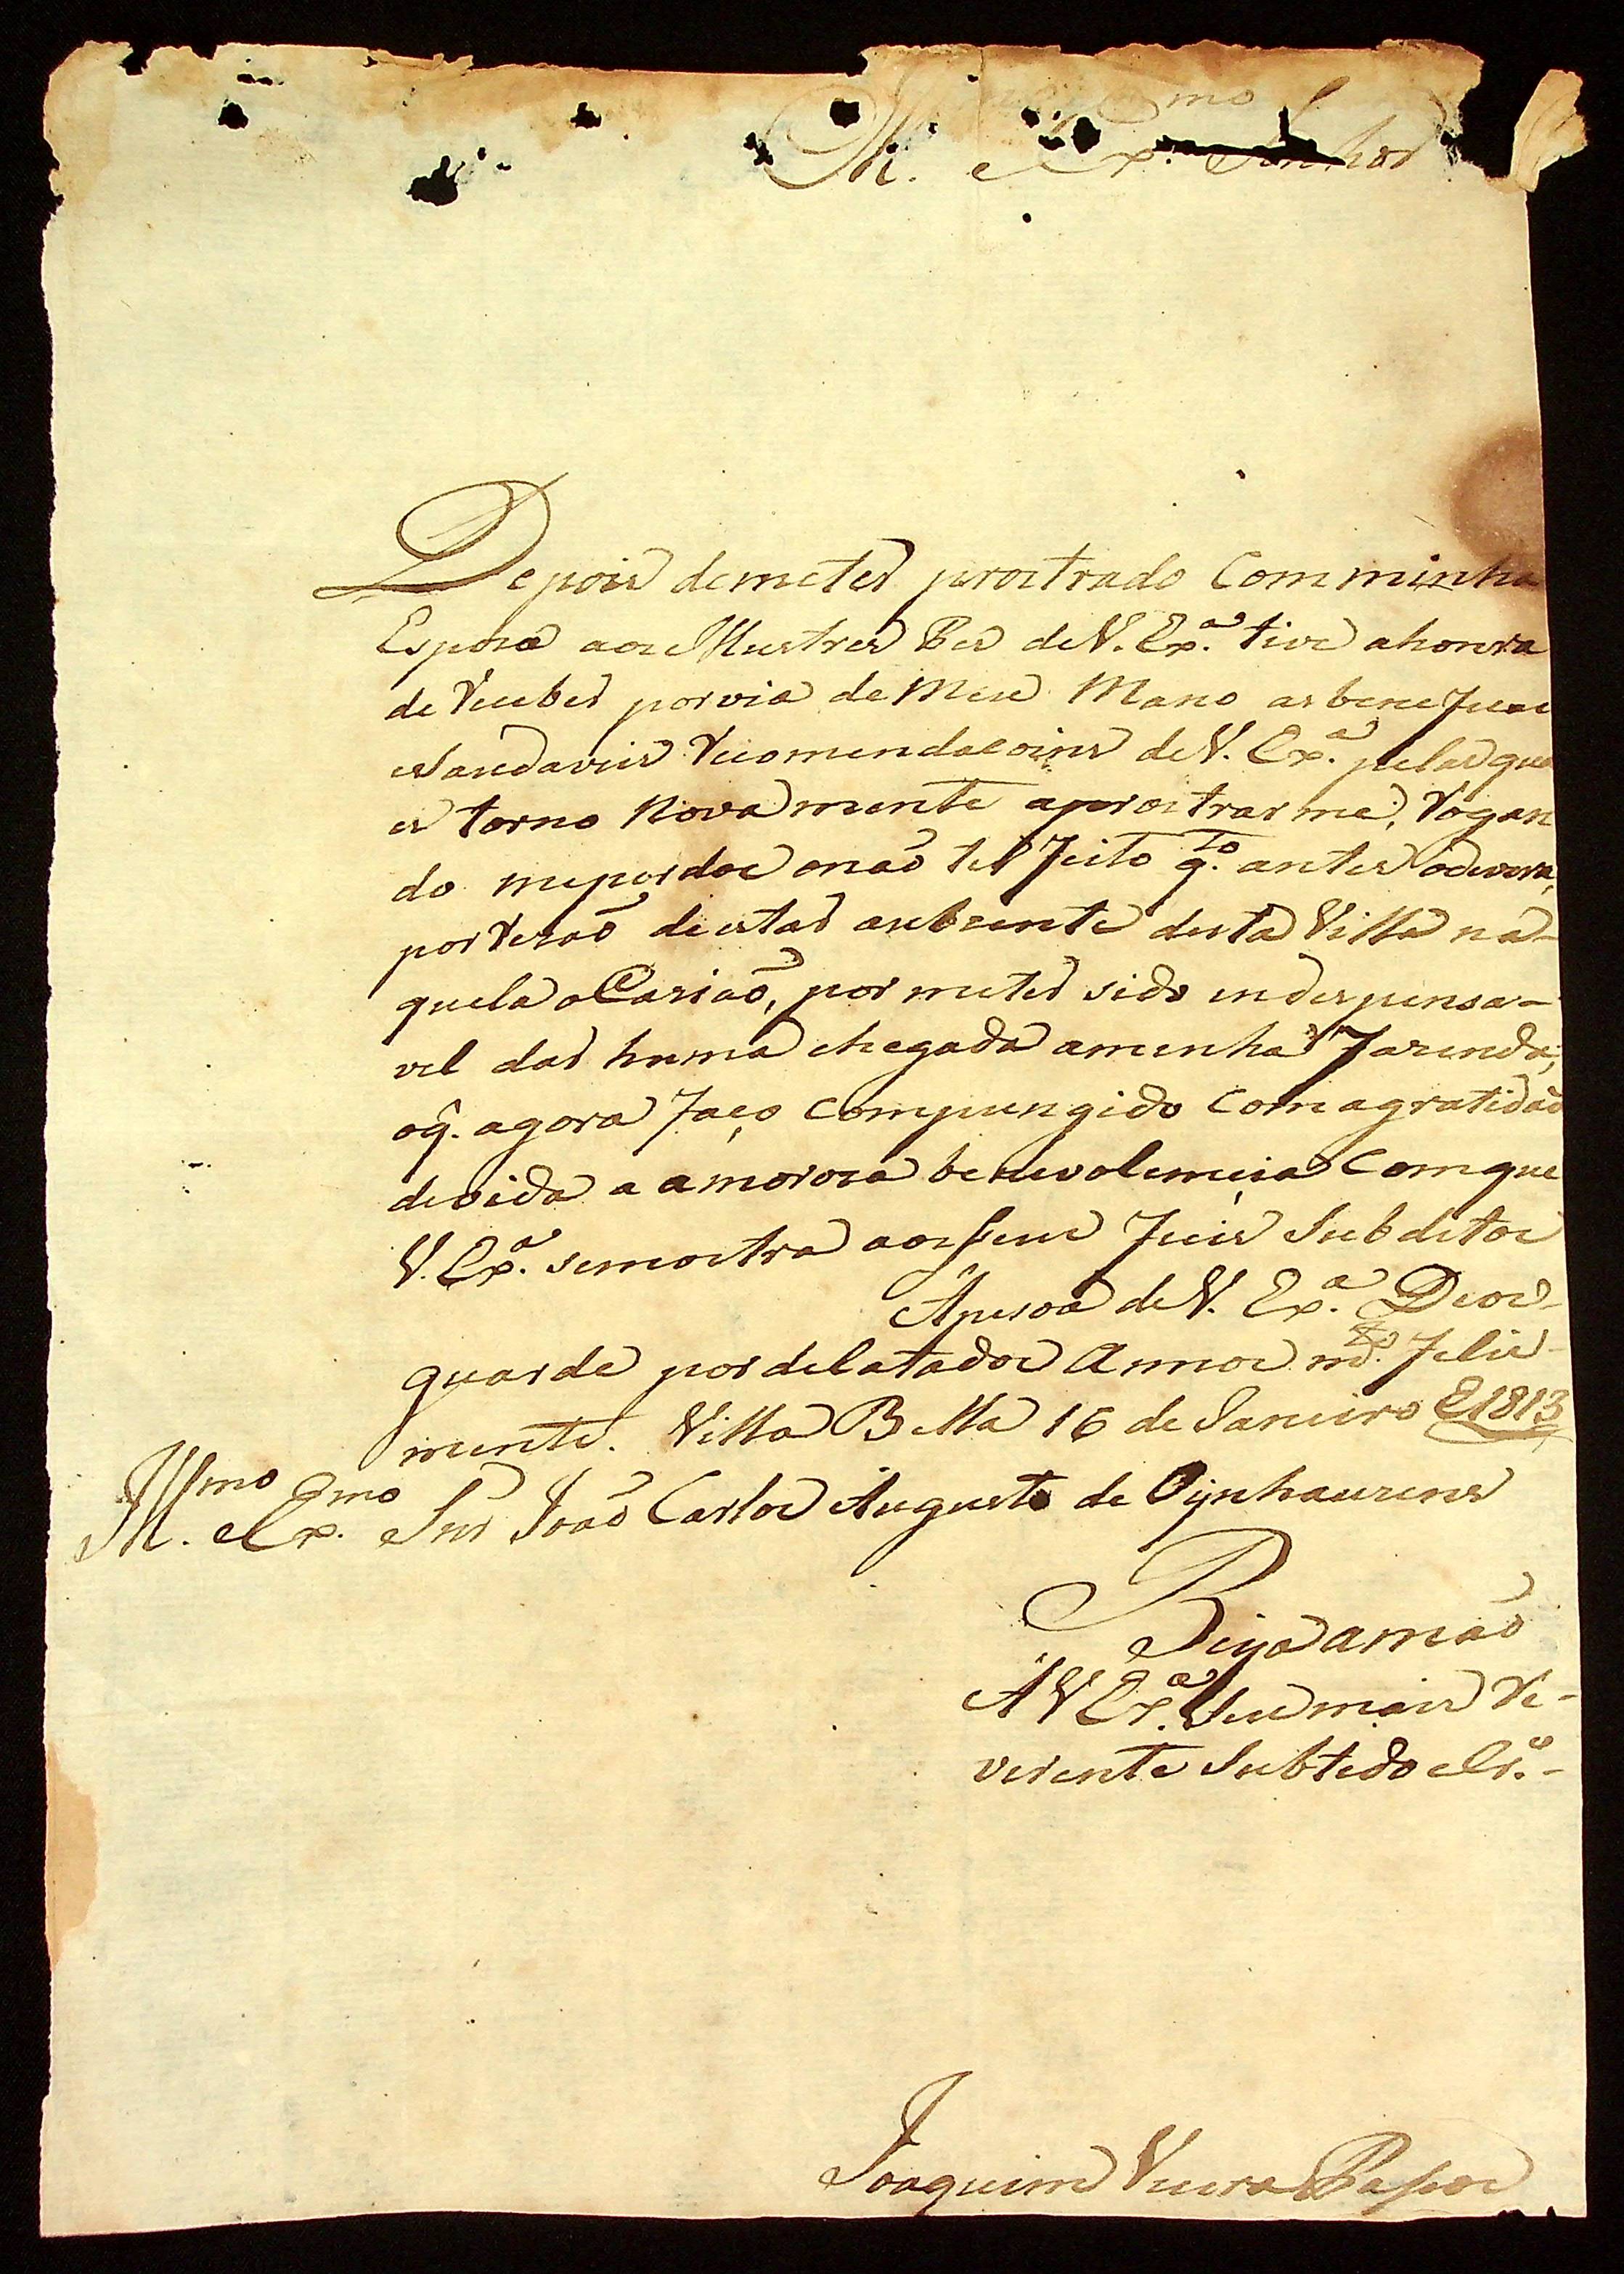 Ill.mo e Ex.mo Senhor
Depois demeter prostrado Comminha
Esposa aos Illustres Pes deV. Ex.ª tive ahonra
de Receber porvia de Meu Mano as
Recomendacoins deV. Ex.ª pelas que
torno Novamente aprostrarme, Rogan
do meperdoe onaõ ter feito q.to antes odevera,
por Resaõ deestar aubzente desta Villa na-
quela oCasiaõ, por meter sido indespensa-
vel dar huma chegada aminha Fazenda,
oq̃. agora faço Compungido Comagratidaõ
devida a amoroza benevolencia Comque
V. Ex.ª semostra aos seus fieis Subditos
Apesoa deV. Ex.ª Deos
guarde por delatados Annos m.tos Felis-
mente. Villa Bella 16 de Janeiro de 1813
Ill.mo e Ex.mo Snr Joaõ Carlos Augusto de Oÿnhausens
Beija amaõ
A V Ex.ª Seu mais Re-
verente Subtedo e Cr.º-
Joaquim Vieira Passos